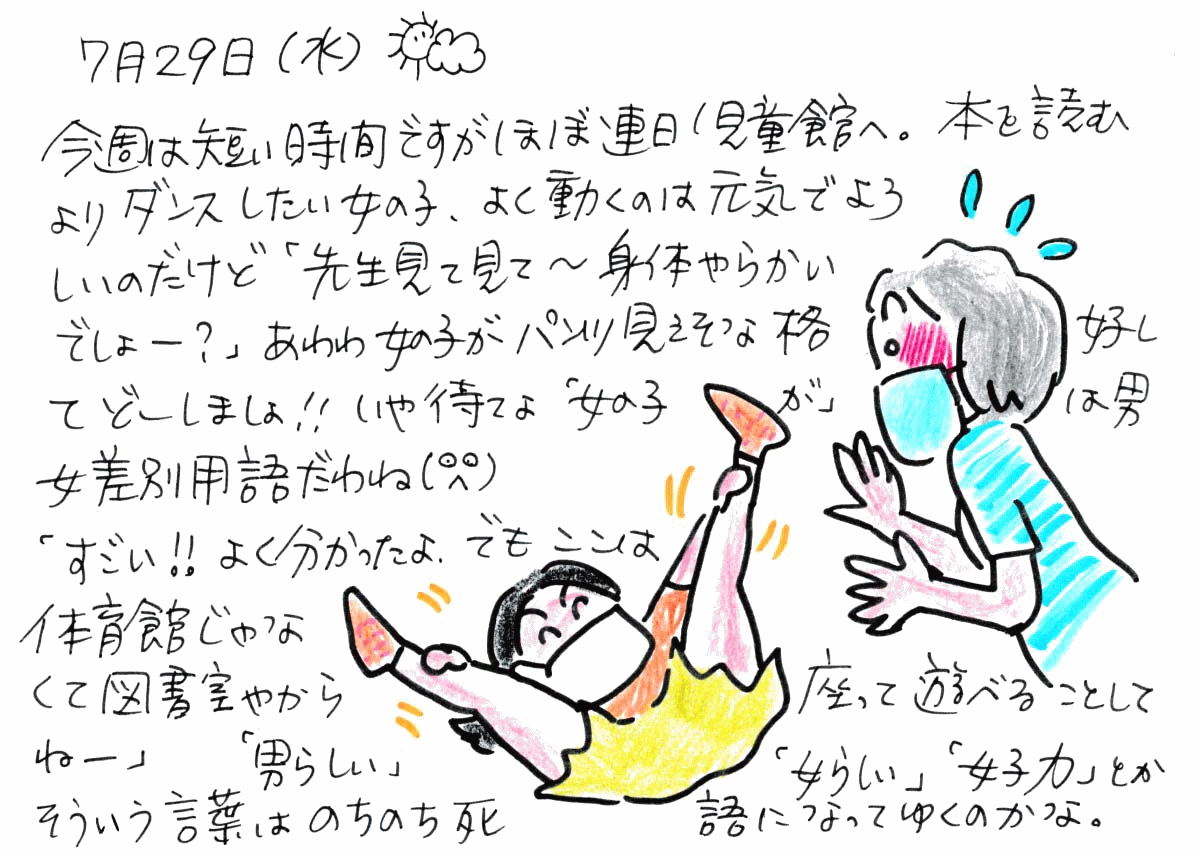 7月29日(水)
今週は短い時間ですがほぼ連日児童館へ。本を読む
よりダンスしたい女の子、よく動くのは元気でよろ
しいのだけど「先生見て見て〜身体やらかい
でしょー?」あわわ女の子がパンツ見えそうな格好し
てどーしましょ!!いや待てよ「女の子が」は男
女差別用語だわね
「すごい!!よく分かったよ。でもここは
体育館じゃな
くて図書室やから座って遊べることして
ねー」「男らしい」「女らしい」「女子力」とか
そういう言葉はのちのち死語になってゆくのかな。